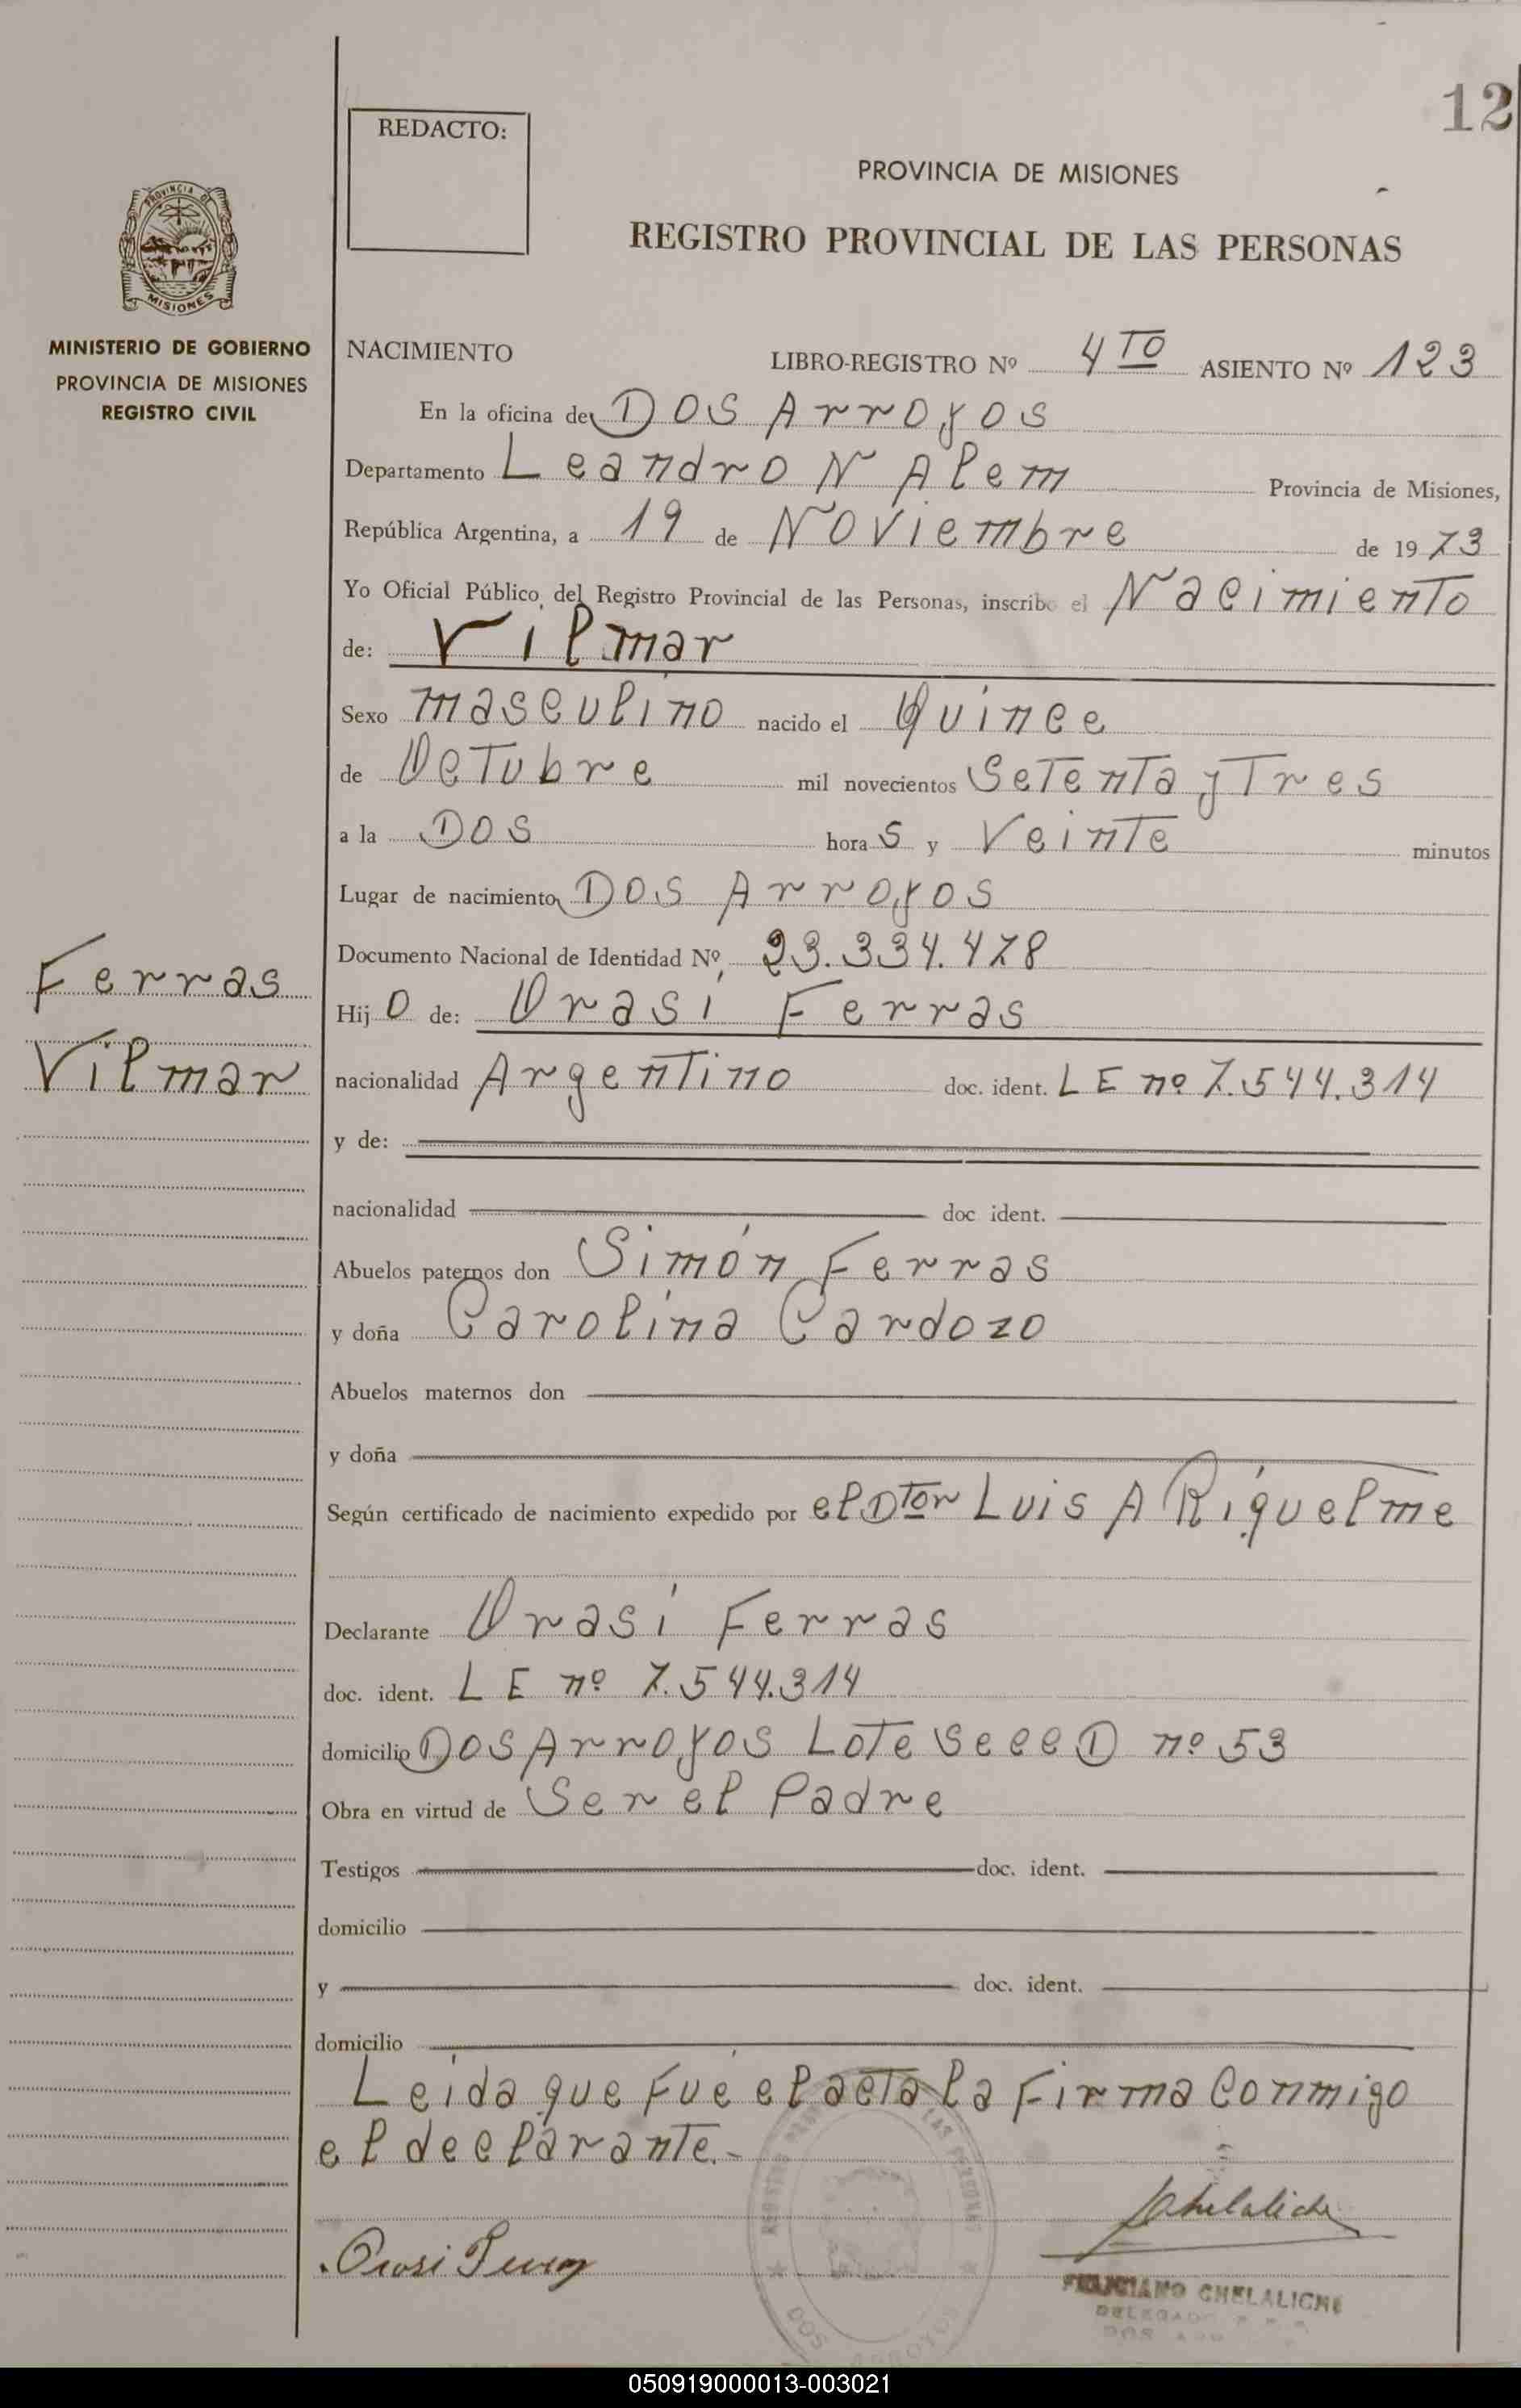 12
REDACTO:
PROVINCIA DE MISIONES
REGISTRO PROVINCIAL DE LAS PERSONAS
PROVINCIA DE
MISIONES
MINISTERIO DE GOBIERNO
PROVINCIA DE MISIONES
REGISTRO CIVIL
NACIMIENTO LIBRO-REGISTRO Nº 4TO ASIENTO Nº 123
En la oficina de Dos Arroyos
Departamento Leandro N Alem Provincia de Misiones,
República Argentina, a 19 de Noviembre de 1973
Yo Oficial Público del Registro Provincial de las Personas, inscribo el Nacimiento
de: Vilmar
Sexo masculino nacido el Quince
de Octubre mil novecientos Setenta y Tres
a la Dos horas y Veinte minutos
Lugar de nacimiento Dos Arroyos
Documento Nacional de Identidad Nº 23.334.478
Ferras
Vilmar
Hijo de: Orasi Ferras
nacionalidad Argentino doc. ident. LE nº 7.544.314
y de:
nacionalidad doc ident.
Abuelos paternos don Simón Ferras
y doña Carolina Cardozo
Abuelos maternos don
y doña
Según certificado de nacimiento expedido por el Dtor Luis A Riquelme
Declarante Orasi Ferras
doc. ident. LE nº 7.544.314
domicilio Dos Arroyos Lote Secc D nº 53
Obra en virtud de Ser el Padre
Testigos doc. ident.
domicilio
y doc. ident.
domicilio
Leida que fué el acta la firma conmigo
el declarante.-
Orasi Ferras
Chelaliche
FELICIANO CHELALICHE
DELEGADO
DOS ARROYOS
050919000013-003021